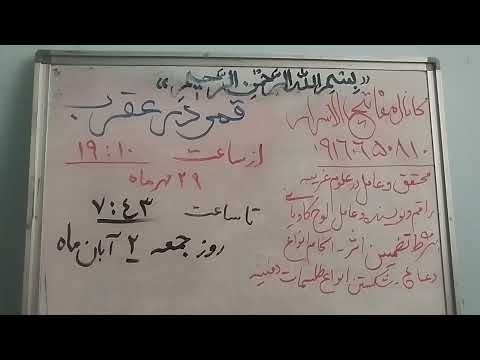 «بسم الله الرحمن الرحیم»
کانال مفاتیح الاسرار
۰۹۱۶۰۶۵۰۸۱۰
محقق و عامل در علوم غریبه
راقم و نویسنده و عامل لوح
بشرط تضمین اثر - انجام انواع
دعا - شکستن انواع طلسمات دفینه
قمر در عقرب
از ساعت ۱۹:۱۰
۲۹ مهر ماه
تا ساعت ۷:۴۳
روز جمعه ۲ آبان ماه